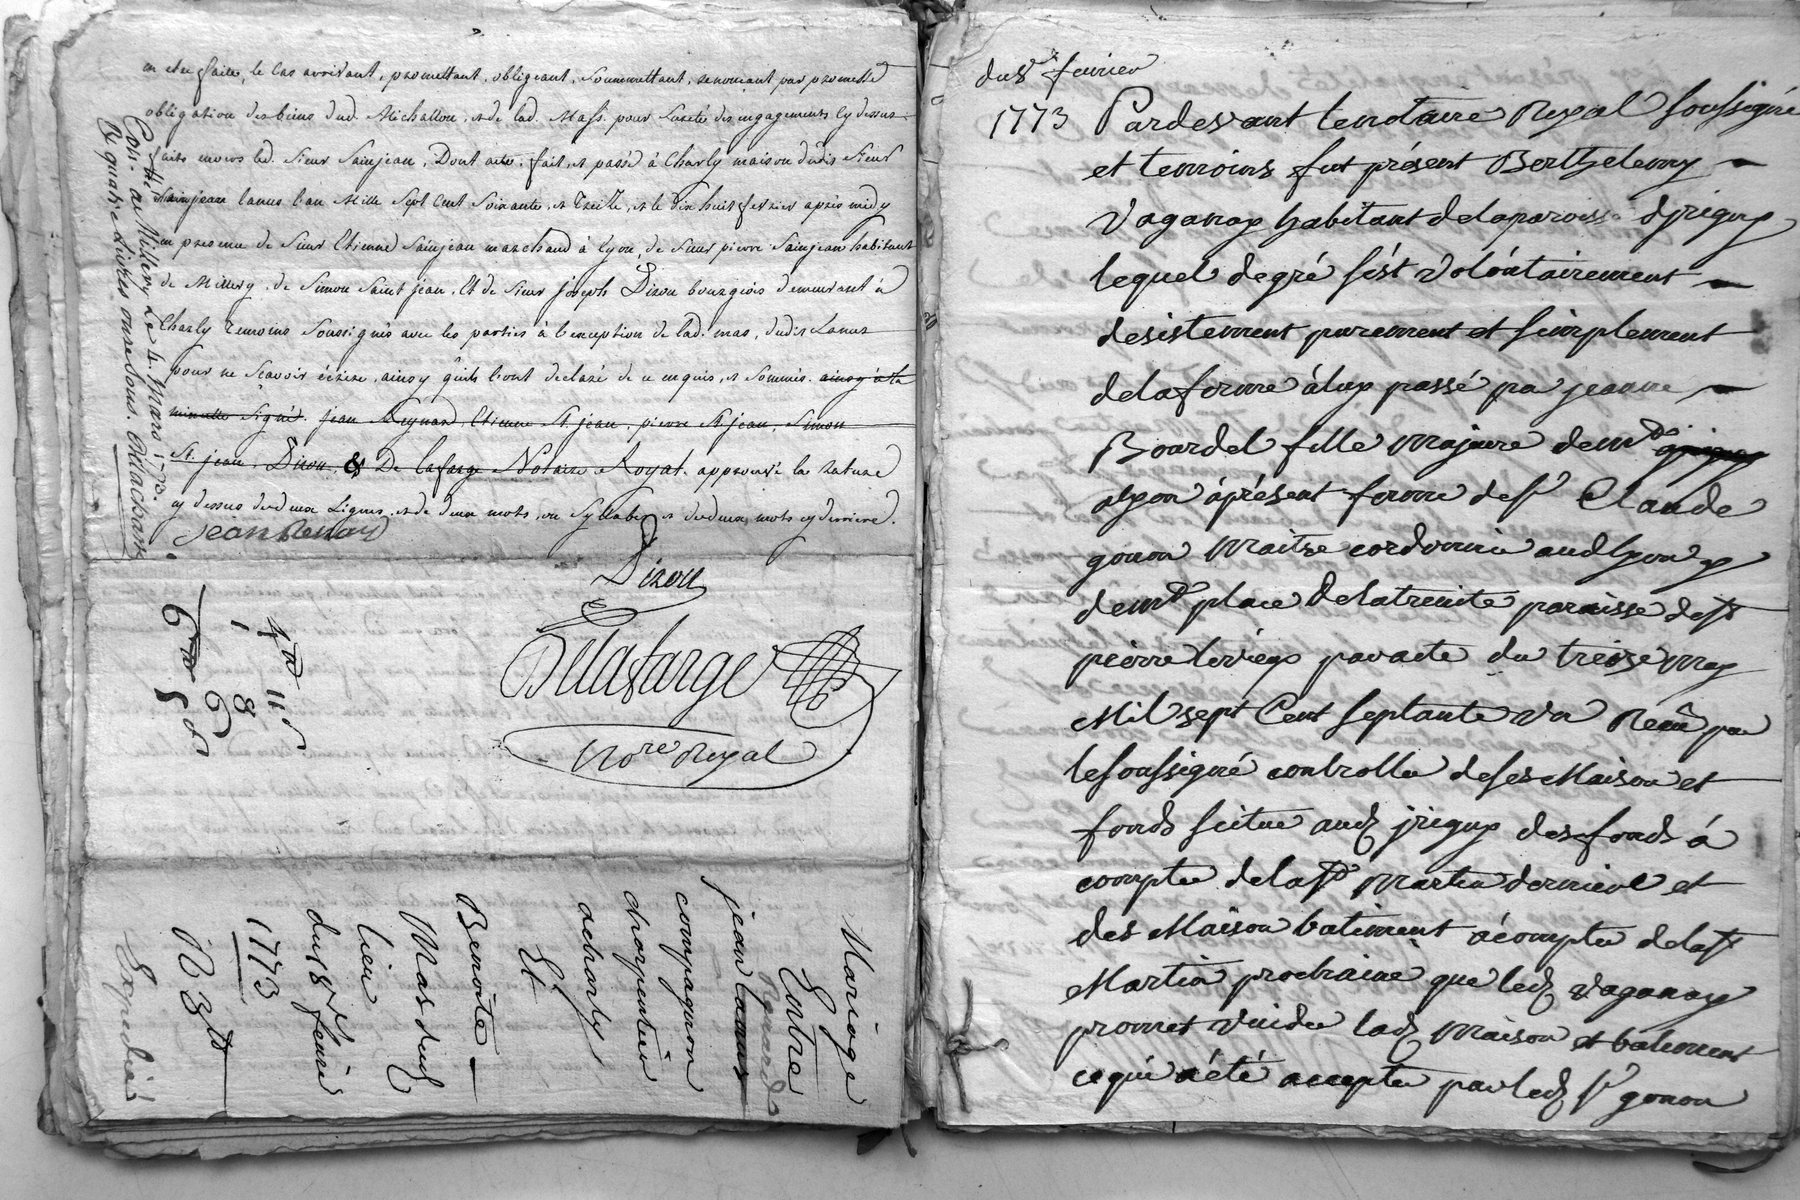 en etre faite, le cas arrivant, promettant, obligeant, soummettant, renonçant par promesse
obligation des biens dud. Michallon, et de lad. Mass. pour sureté des engagements cy dessus
faits envers led. Sieur Sainjean, Dont acte, fait, et passé à Charly maison dudit Sieur
Sainjean l'an Mille Sept Cent Soixante et treize, et le dix huit fevrier après midy
en presence de Sieur Etienne Sainjean marchand à Lyon, de Sieur pierre Sainjean habitant
de Millery, de Simon Saint jean, Et de Sieur joseph Dizou bourgeois demeurant à
Charly temoins Soussignés avec les parties à l'exception de lad. mas, dudit Lanus
pour ne Scavoir écrire, ainsy qu'ils l'ont declaré de ce enquis, et Sommés. ainsy à la
minutte Signé. Jean Reynard, Etienne St. jean, pierre St. jean, Simon
St. jean, Dizou, & De lafarge Notaire Royal. approuvé la rature
cy dessus de deux Lignes, et de deux mots, ou Syllabes et de deux mots cy derriere.
Jean Renard
Dizou
Delafarge
Nore Royal
Con. à Millery Le 4. Mars 1773.
quatre Livres onze Sous.
4tt 11s
1 8
6
6tt 5s
Mariage
Entre
jean Lanus
Renard
compagnon
charpentier
acharly
Et
Benoite
Mas dud
lieu
du 18e feurier
1773
R 3tt
Expedié
du 8e feurier
1773 Pardevant le notaire Royal soussigné
et temoins fut présent Berthelemy
Vaganay habitant de la paroisse d'jrigny
lequel de gré s'est volontairement
desistement purement et simplement
de la ferme à luy passé par jeanne
Bourdel fille majeure demt
a lyon à présent femme de sr Claude
gonon maitre cordonnier aud lyon y
demt place de la trinité paroisse de st
pierre le vieux par acte du treize may
Mil sept Cent septante un Recu par
le soussigné controllé de ses Maison et
fonds scitué aud jrigny des fonds à
compter de la st Martin derniere et
des Maison batiment à compter de la st
Martin prochaine que led Vaganay
promet vuider lad maison et batiment
ce qui a été accepté par led sr gonon